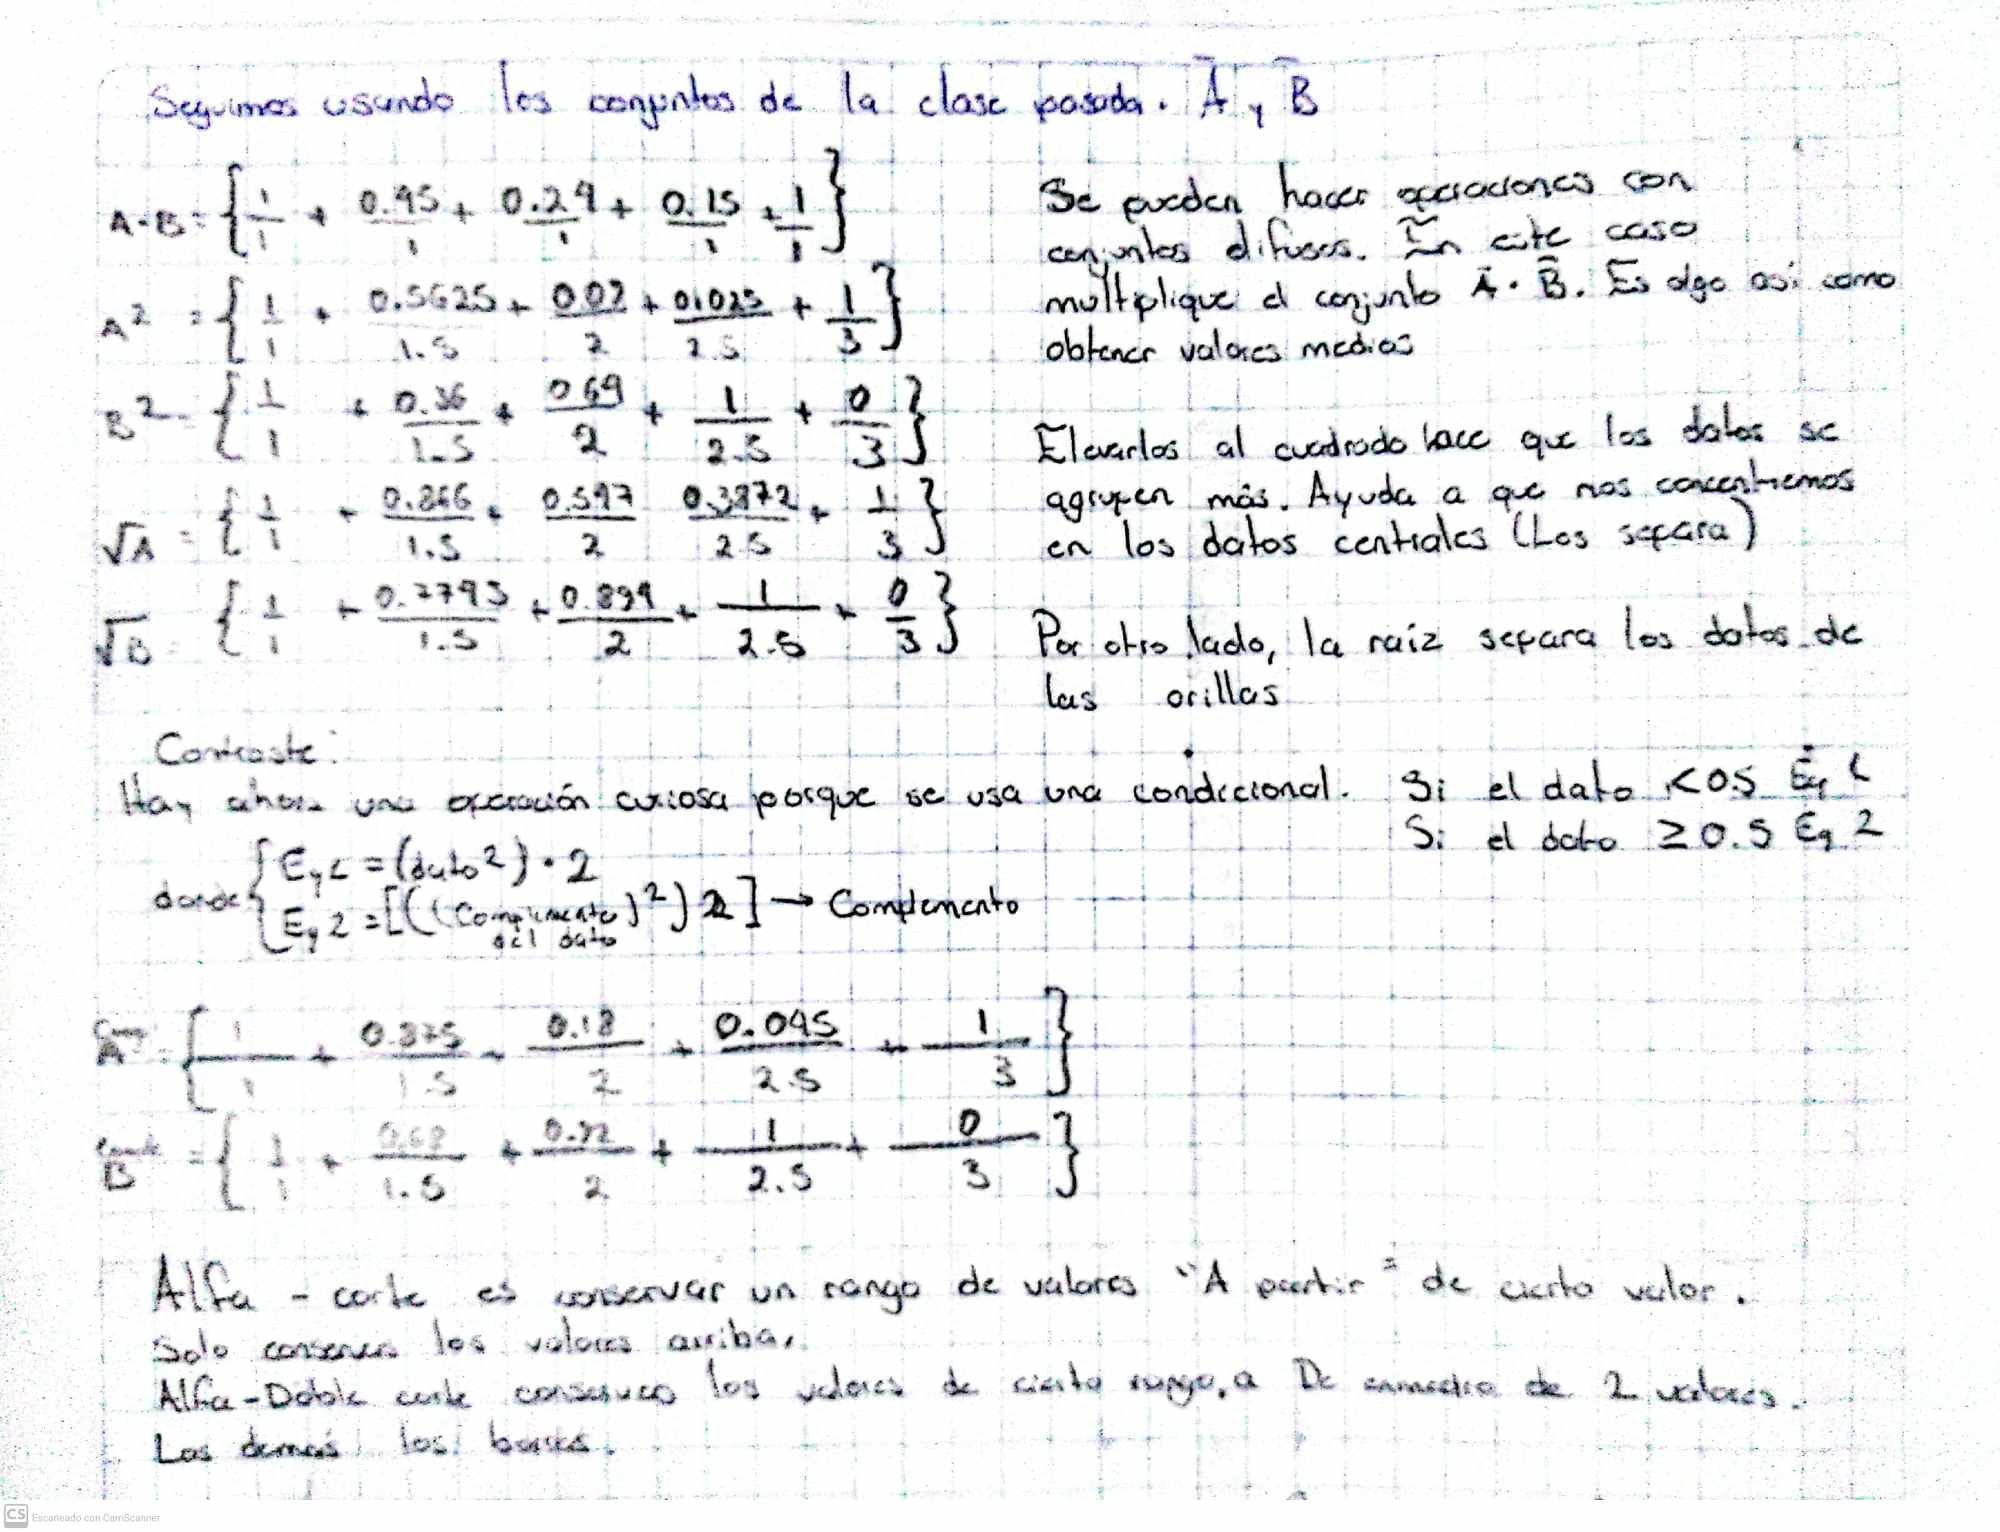 Seguimos usando los conjuntos de la clase pasada. A y B
A·B = { 1/1 + 0.45/1 + 0.24/1 + 0.15/1 + 1/1 }
A² = { 1/1 + 0.5625/1.5 + 0.09/2 + 0.025/2.5 + 1/3 }
B² = { 1/1 + 0.36/1.5 + 0.64/2 + 1/2.5 + 0/3 }
√A = { 1/1 + 0.866/1.5 + 0.547/2 0.3872/2.5 + 1/3 }
√B { 1/1 + 0.7745/1.5 + 0.894/2 + 1/2.5 + 0/3 }
Se pueden hacer operaciones con
conjuntos difusos. En este caso
multiplique el conjunto A · B. Es algo así como
obtener valores medios
Elevarlos al cuadrado hace que los datos se
agrupen más. Ayuda a que nos concentremos
en los datos centrales (Los separa)
Por otro lado, la raiz separa los datos de
las orillas
Contraste:
Hay ahora una operación curiosa porque se usa una condicional. Si el dato <0.5 Eq 1
Si el dato ≥ 0.5 Eq 2
donde { Eq 1 = (dato²) · 2
Eq 2 = [((Complemento del dato)²) 2] → Complemento
A = { 1/1 + 0.875/1.5 + 0.18/2 + 0.045/2.5 + 1/3 }
B = { 1/1 + 0.68/1.5 + 0.92/2 + 1/2.5 + 0/3 }
Alfa - corte es conservar un rango de valores "A partir" de cierto valor.
Solo conservas los valores arriba.
Alfa-Doble corte conservas los valores de cierto rango, a De enmedio de 2 valores.
Los demás los borras.
CS Escaneado con CamScanner